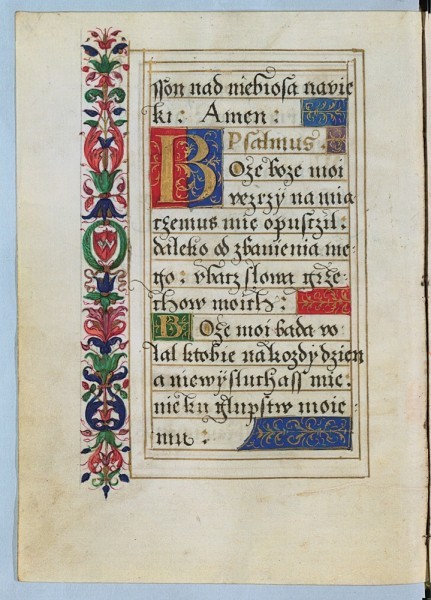 sson nad niebiosa navie
ki: Amen:
Psalmus.
Boże boże moi
wezrzy na mia
czemus mie opusczil:
daleko od zbawienia me
go: vbacz slowa grze
chow moich:
Boże moi bąda vo
łal ktobie na kozdy dzien
a niewysluchass mie:
nie ku glupstw moie
mu: